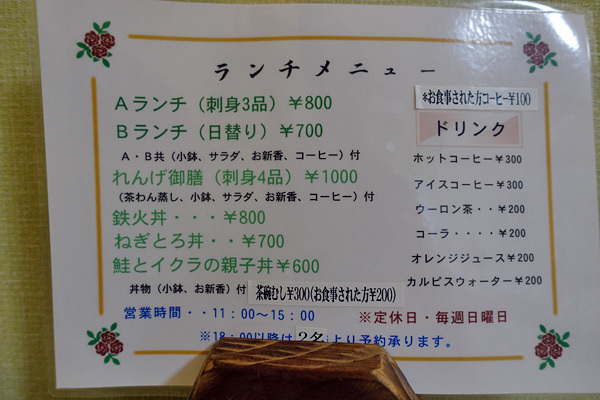 ランチメニュー
Aランチ（刺身3品）￥800
Bランチ（日替り）￥700
A・B共（小鉢、サラダ、お新香、コーヒー）付
れんげ御膳（刺身4品）￥1000
（茶わん蒸し、小鉢、サラダ、お新香、コーヒー）付
鉄火丼・・・￥800
ねぎとろ丼・・￥700
鮭とイクラの親子丼￥600
丼物（小鉢、お新香）付
茶碗むし¥300(お食事された方¥200)
※お食事された方コーヒー¥100
ドリンク
ホットコーヒー￥300
アイスコーヒー￥300
ウーロン茶・・￥200
コーラ・・・・￥200
オレンジジュース￥200
カルピスウォーター￥200
営業時間・・11：00～15：00
※定休日・毎週日曜日
※18：00以降は2名より予約承ります。